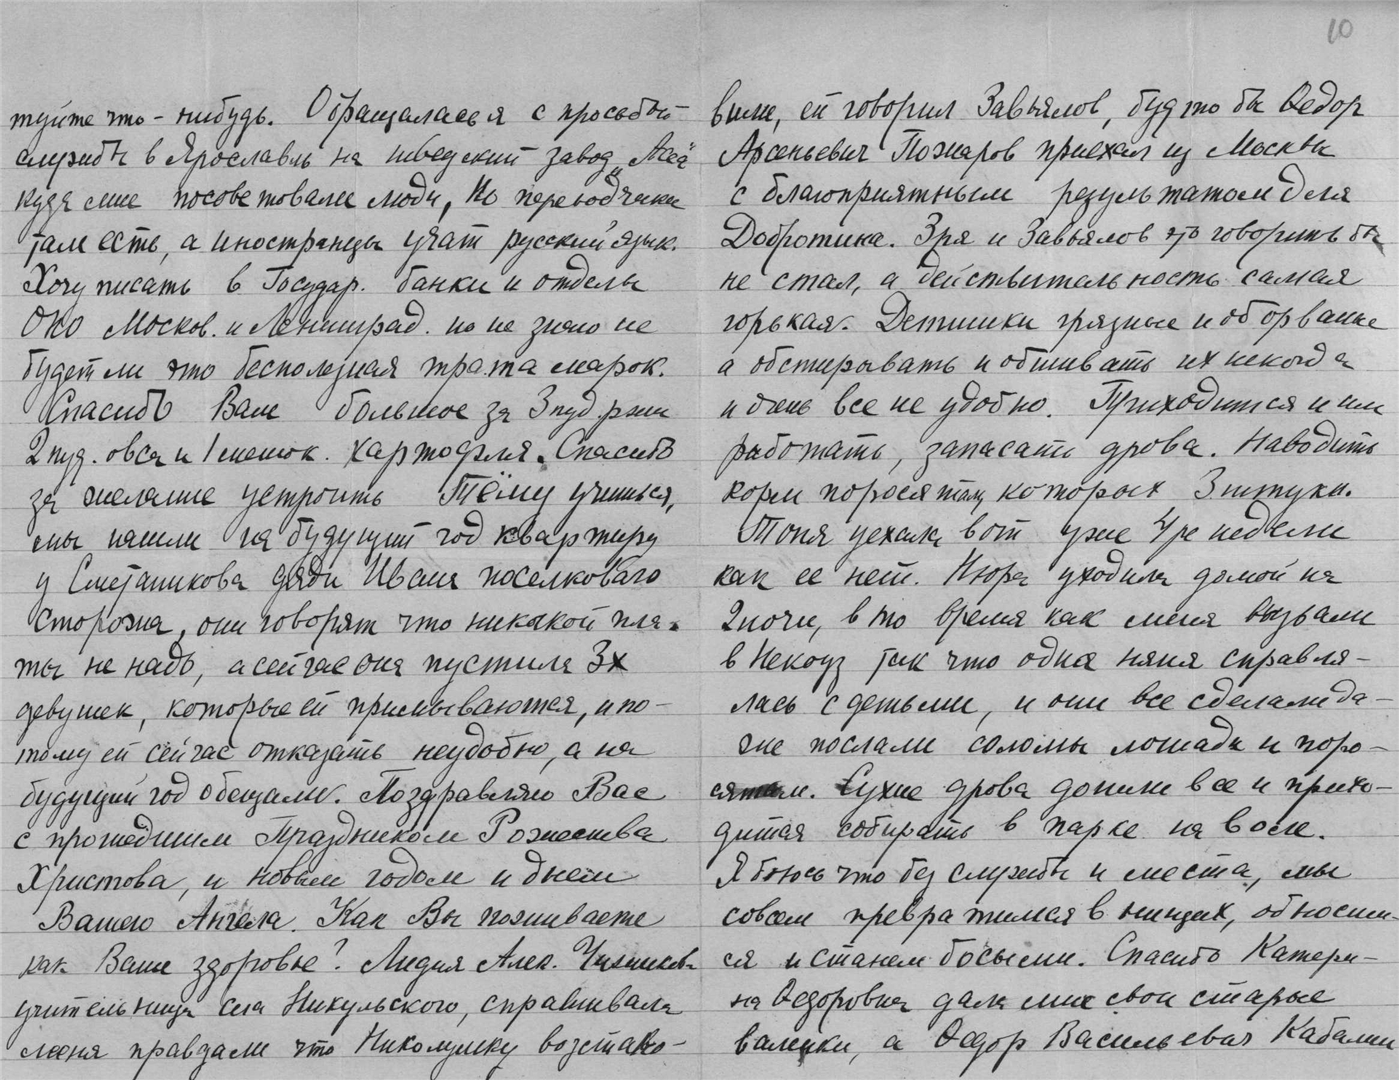 10
туйте что-нибудь. Обращалась я с просьбой
службы в Ярославль на шведский завод „Аса"
куда мне посоветовали люди, но переводчики
там есть, а иностранцы учат русский язык.
Хочу писать в Государ. банки и отделы
ОНО Москов. и Ленинград. но не знаю не
будет ли это бесполезная трата марок.
Спасибо Вам большое за 3 пуд. ржи
2 пуд. овса и 1 мешок. картофля. Спасибо
за желание устроить Тёму учиться,
мы нашли на будущий год квартиру
у Сметанникова дяди Ивана поселкового
сторожа, они говорят что никакой пла-
ты не надо, а сейчас она пустила 3х
девушек, которые ей примываются, и по-
тому ей сейчас отказать неудобно, а на
будущий год обещали. Поздравляю Вас
с прошедшим Праздником Рожества
Христова, и новым годом и днем
Вашего Ангела. Как Вы поживаете
как Ваше здоровье? Лидия Алек.
учительница села Никульского, спрашивала
меня правда ли что Николушку возстано-
вили, ей говорил Завьялов, будто бы Федор
Арсеньевич Пожаров приехал из Москвы
с благоприятным результатом для
Добротина. Зря и Завьялов это говорить бы
не стал, а действительность самая
горькая. Детишки грязные и оборваные
а обстирывать и обшивать их некогда
и очень все не удобно. Приходится и им
работать, запасать дрова. Наводить
корм поросятам, которых 3 штуки.
Тоня уехала вот уже 4ре недели
как ее нет. Нюра уходила домой на
2 ночи, в то время как меня вызвали
в Некоуз так что одна няня справля-
лась с детьми, и они все сделали да-
же послали соломы лошади и поро-
сятам. Сухие дрова дошли все и прихо-
дится собирать в парке на воле.
Я боюсь что без службы и места, мы
совсем превратимся в нищих, обносим-
ся и станем босыми. Спасибо Катери-
на Федоровна дала мне свои старые
валенки, а Федор Васильевич Кабалин